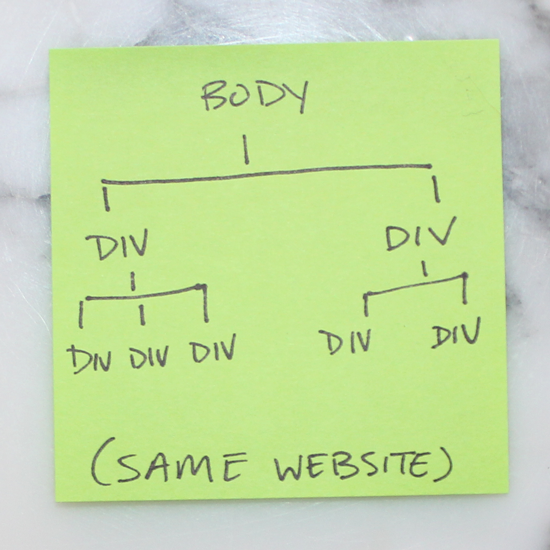 BODY
DIV DIV
DIV DIV DIV DIV DIV
(SAME WEBSITE)